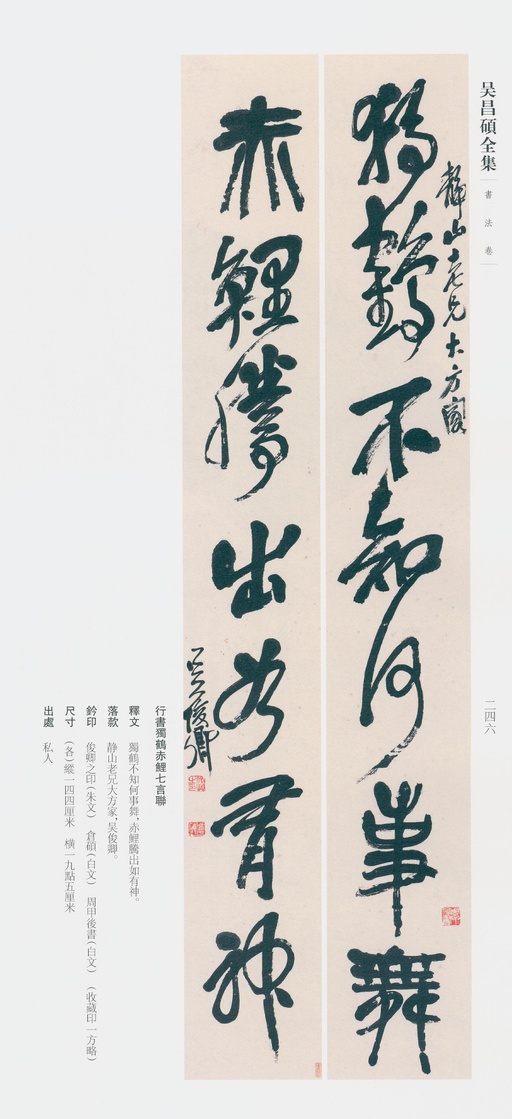 吴昌碩全集
書法卷
静山老兄大方家
獨鶴不知何事舞
赤鯉騰出如有神
吴俊卿
二四六
行書獨鶴赤鯉七言聯
釋文 獨鶴不知何事舞，赤鯉騰出如有神。
落款 静山老兄大方家，吴俊卿。
鈐印 俊卿之印（朱文） 倉碩（白文） 周甲後書（白文） （收藏印一方略）
尺寸 （各）縱一四四厘米 橫一九點五厘米
出處 私人